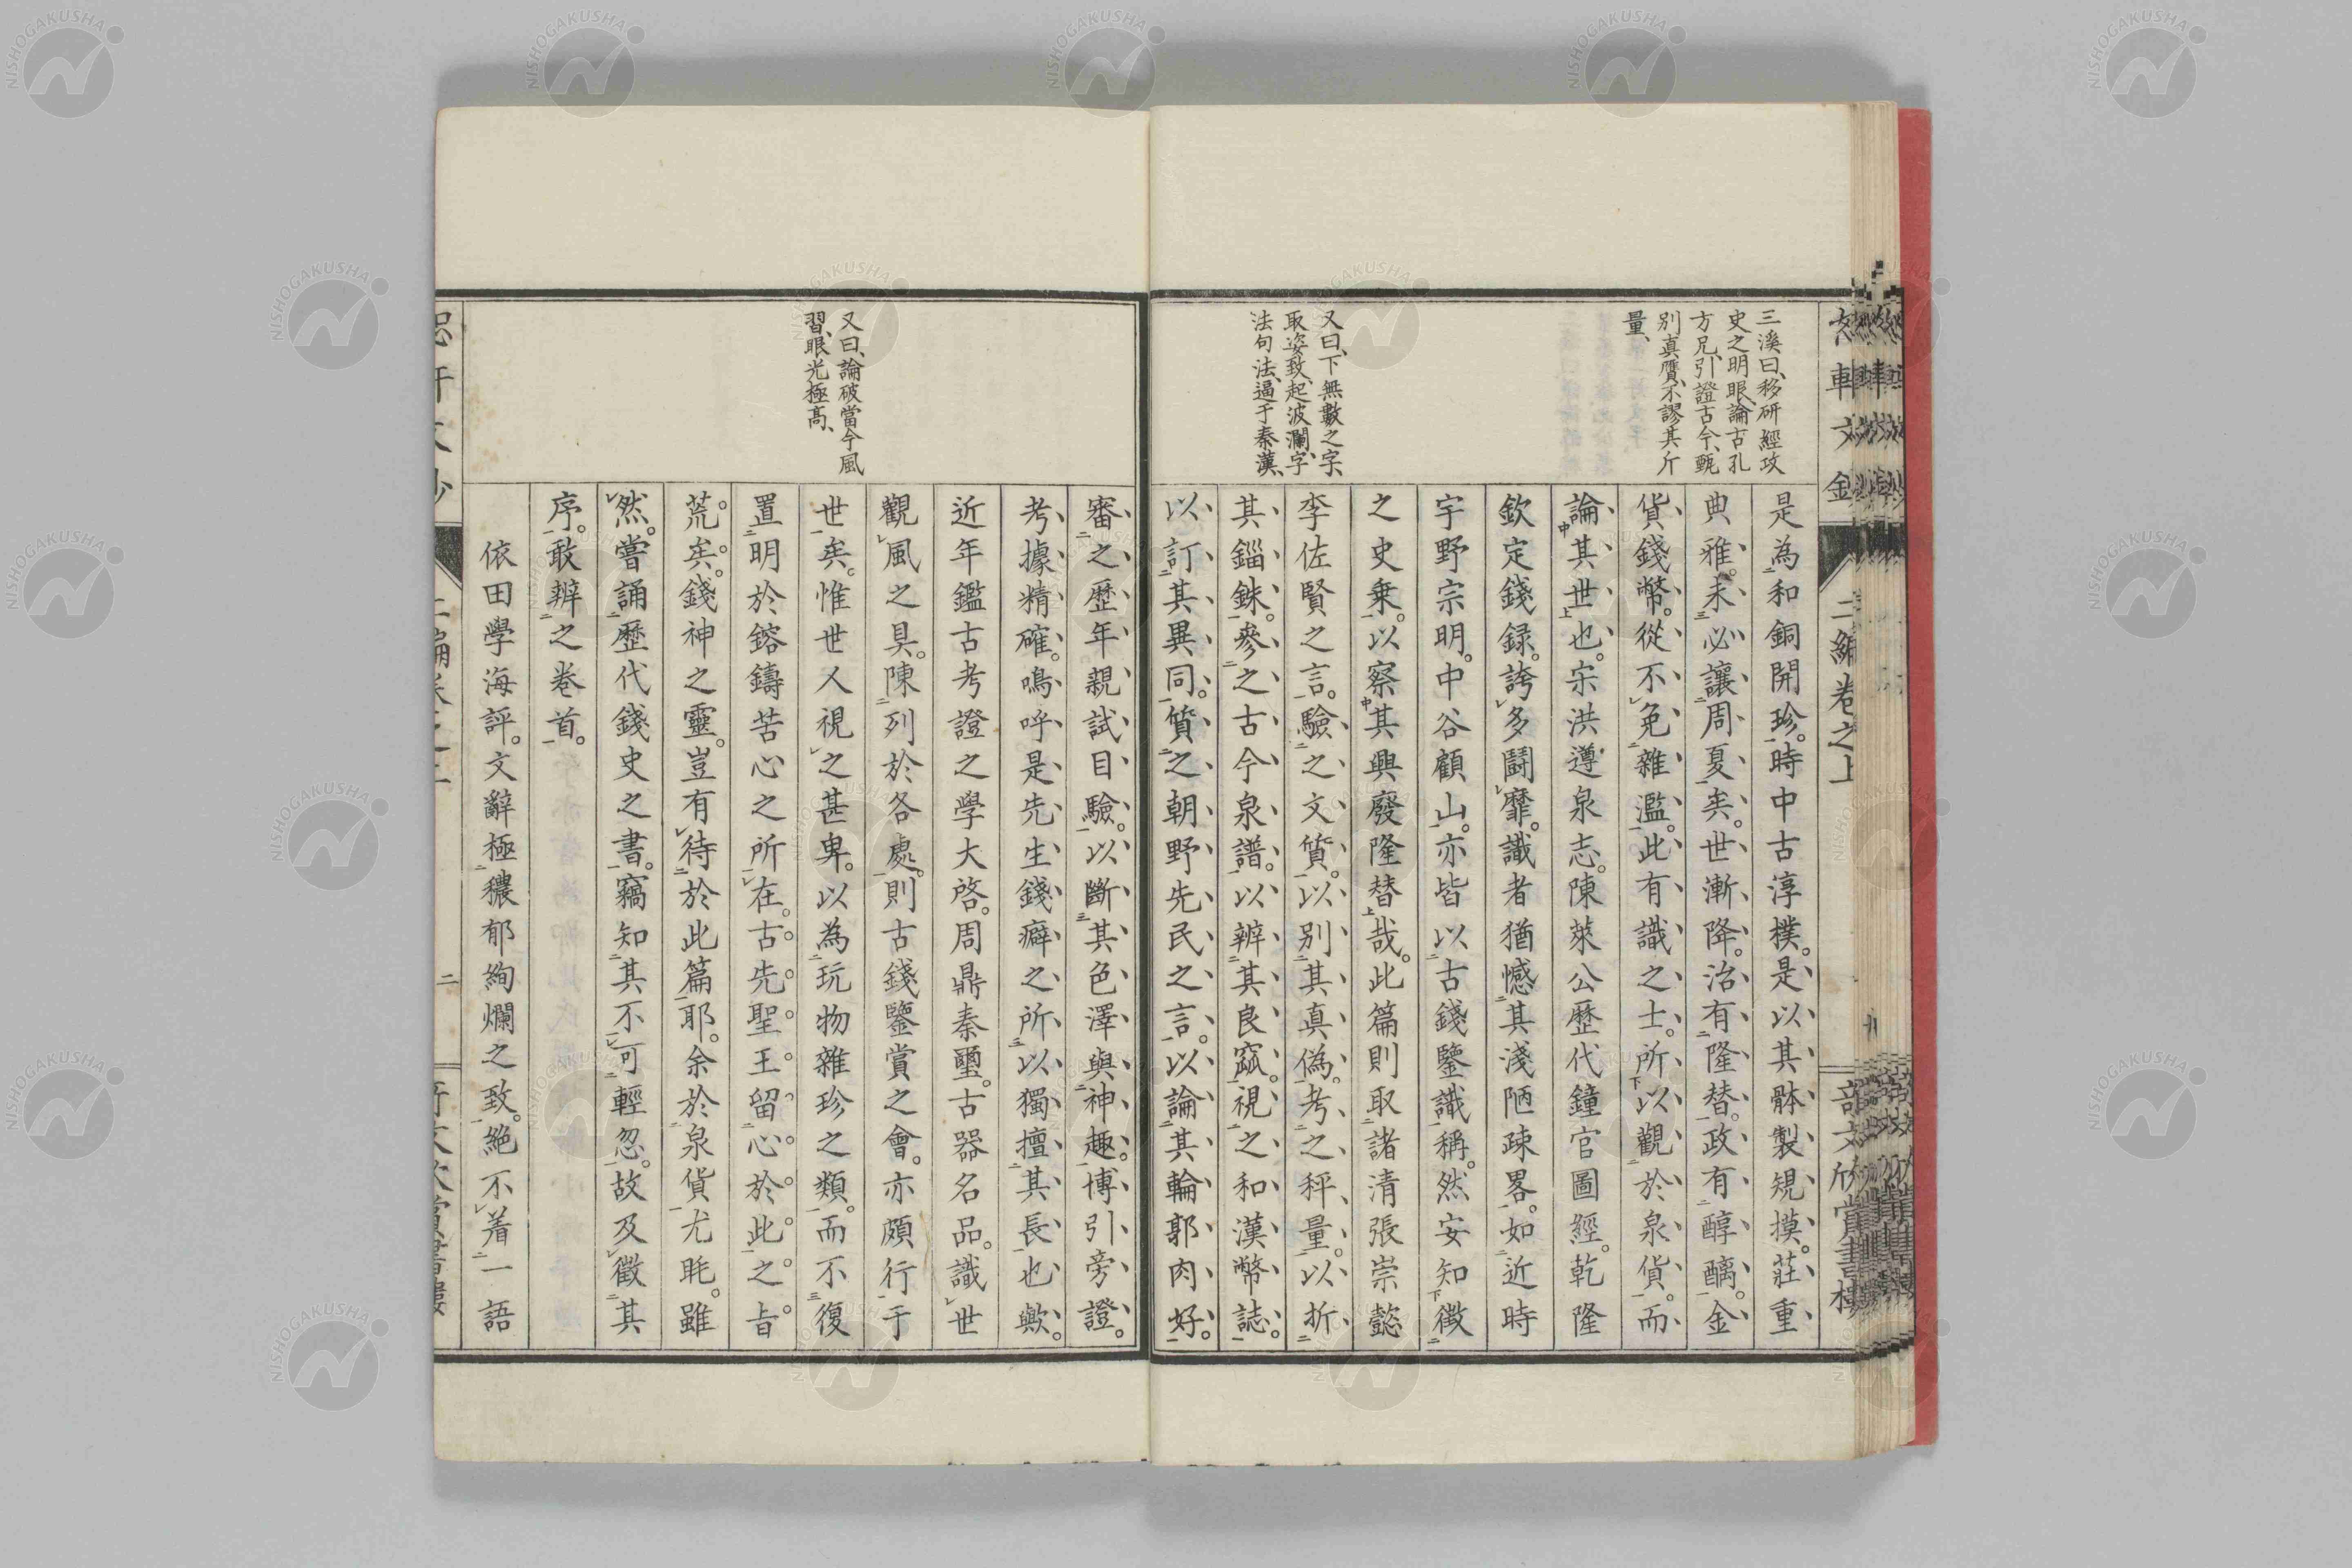 三溪曰、移研經攻
史之明眼、論古孔
方兄、引證古今、甄
別真贋、不謬其斤
量、
又曰、下無數之字、
取姿致、起波瀾、字
法句法、逼于秦漢、
是為和銅開珍。時中古淳樸。是以其骵製規摸。莊重
典雅。未必讓周夏矣。世漸降。治有隆替。政有醇醨。金
貨錢幣。從不免雜濫。此有識之士。所以觀於泉貨。而
論其世也。宋洪遵泉志。陳萊公歷代鐘官圖經。乾隆
欽定錢録。誇多鬪靡。識者猶憾其淺陋疎畧。如近時
宇野宗明。中谷顧山。亦皆以古錢鑒識稱。然安知徵
之史乗。以察其興廢隆替哉。此篇則取諸清張崇懿
李佐賢之言。驗之文質。以別其真偽。考之秤量。以折
其錙銖。參之古今泉譜。以辨其良窳。視之和漢幣誌。
以訂其異同。質之朝野先民之言。以論其輪郭肉好。
又曰、論破當今風
習、眼光極高、
審之歷年親試目驗。以斷其色澤與神趣。博引旁證。
考據精確。嗚呼是先生錢癖之所以獨擅其長也歟。
近年鑑古考證之學大啓。周鼎秦璽。古器名品。識世
觀風之具。陳列於各處。則古錢鑒賞之會。亦頗行于
世矣。惟世人視之甚卑。以為玩物雜珍之類。而不復
置明於鎔鑄苦心之所在。古先聖王留心於此之旨
荒矣。錢神之靈。豈有待於此篇耶。余於泉貨尤眊。雖
然。嘗誦歷代錢史之書。竊知其不可輕忽。故及徵其
序。敢辨之卷首。
依田學海評。文辭極穠郁絢爛之致。絕不着一語
二編卷之上